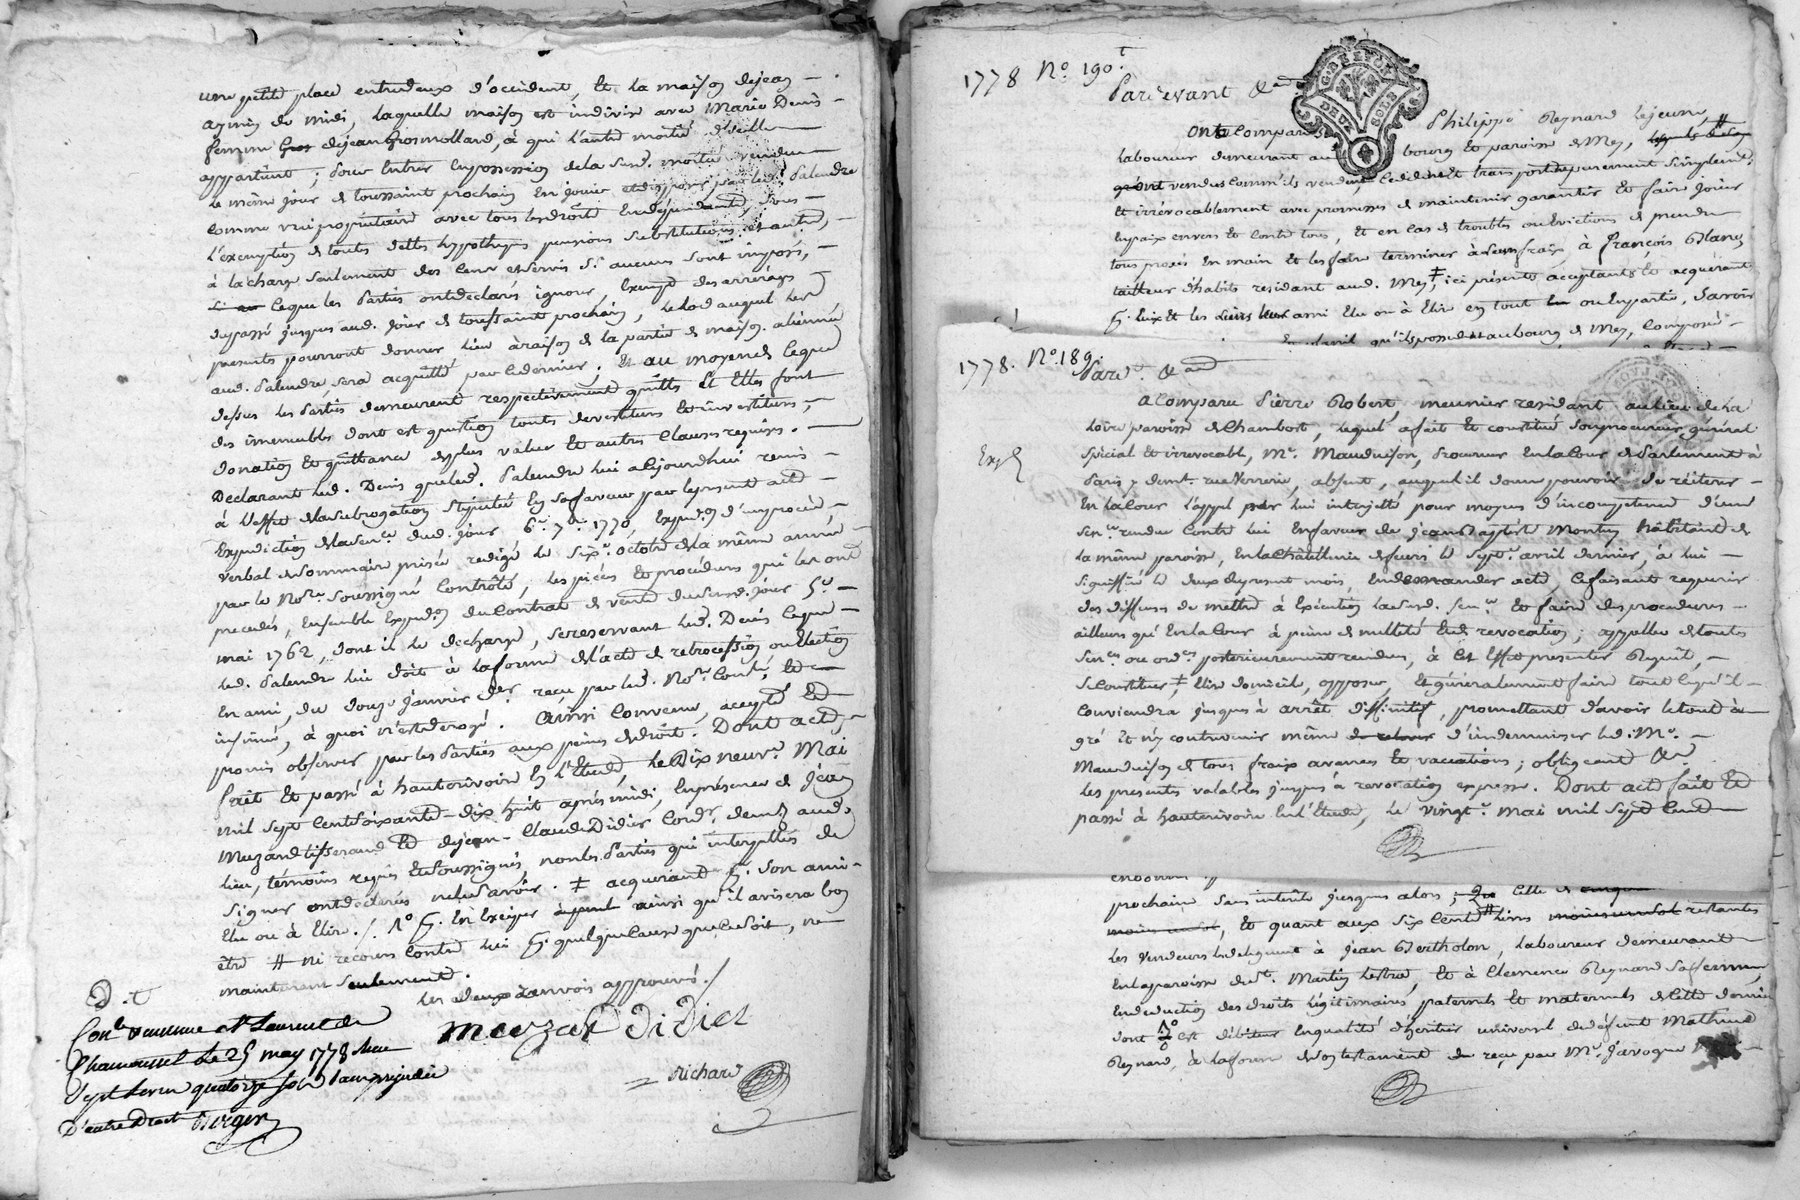 une petite place entredeux d'occident, Et la maison dejean
aymin de midi, laquelle maison est indivise avec Marie Denis
femme Gros dejean Grosmollard, à qui l'autre moitié d'icelle
appartient ; pour Entrer Enpossession dela susd. moitié vendue
le même jour de toussaint prochain En jouir et disposer par led. Palandre
comme vrai propriétaire avec tous les droits En dépendants, sous
l'exemption de toutes dettes hypotheques pensions substitutions et autres,
à la charge seulement des cens et servis s'il aucuns sont imposés,
ce que les Parties ont declarés ignorer, Exempt des arrérages
du passé jusques aud. jour de toussaint prochain, le lod auquel les
presentes pourront donner lieu àraison de la partie de maison aliénée
aud. Palandre, sera acquitté par ce dernier ; Et au moyen de ce que
dessus les Parties demeurent respectivement quittes Et Elles font
des immeubles dont est question toutes devestitures Et investitures,
donation Et quittance de plus value Et autres Clauses requises.
Declarant led. Denis que led. Palandre lui a cejourdhui remis
à l'effet de la subrogation stipulée En sa faveur par le present acte
Expedition de la sen.ce dud. jour 6.e 7.bre 1770, Exped.on d'un procès
verbal de sommaire prisée redigé le six.e octobre de la même année
par le No.re soussigné Contrôlé, les pièces Et procedures qui les ont
precedés, Ensemble Exped.on du Contrat de vente du susd. jour 5.e
mai 1762, dont il le decharge, se reservant led. Denis ce que
led. Palandre lui doit à la forme de l'acte de retrocession ou Election
En ami, du douze janvier d.er reçu par led. No.re Cont.lé, Et
insinué, à quoi n'est derogé. Ainsi Convenu, accepté Et
promis observer par les Parties aux peines de droit. Dont acte,
fait Et passé à hauterivoire En l'Etude, le Dix neuv.e Mai
mil sept Centsoixante-dix huit après midi, En présence de Jean
Muzard tisserand Et de jean-Claude Didier Cord.r dem.ts aud.
lieu, témoins requis Et soussignés, non les Parties qui interpellés de
signer ont declarés ne le savoir. ‡ acquérant p.r son ami
Elu ou à Elire. / 1° p.r En Exiger ainsi qu'il avisera bon
être # ni recours Contre lui p.r quelque cause que ce soit, ne
maintenant seulement.
les deux Renvois approuvés. /
muzard didiet
Richard
D. t
Con.le a St Laurent de
Chamousset le 25 may 1778 Reçu
sept livres quatorze sols sans préjudice
d'autre Droit Berger
1778 N.o 190.t
Pardevant &.a
GEN. LYON
DEUX SOLS
Ont Comparu Philippe Reynard lejeune,
laboureur demeurant au bourg Et paroisse de Mey,
vendus comm'ils vendent cedent Et transportent purement simplement
Et irrévocablement avec promesses de maintenir garantir Et faire jouir
En paix envers Et contre tous, Et en cas de troubles ou Evictions de prendre
tous procès En main Et les faire terminer à leurs frais, à françois Blanc
tailleur d'habits residant aud. Mey, ‡ ici présent acceptant Et acquérant
p.r lui Et les siens leur ami Elu ou à Elire en tout ou En partie, savoir
qu'ils possedent au bourg de Mey, Composé
1778. N.o 189.
Pard.t &.a
Exp.é
A Comparu Pierre Robert, meunier residant au lieu de la
Loire paroisse de Chambost, lequel a fait Et constitué son procureur général
spécial Et irrevocable, M.e Mauduison, Procureur En la Cour de Parlement à
Paris y dem.t rue Verrerie, absent, auquel il donne pouvoir de réiterer
En la Cour l'appel par lui interjetté pour moyens d'incompetence d'une
sen.ce rendue Contre lui En faveur de Jean Baptiste Montin habitant de
la même paroisse, En la Châtellenie de feurs le sept.e avril dernier, à lui
signiffié le deux du present mois, En demander acte, Ce faisant requerir
des deffenses de mettre à Exécution la susd. sen.ce Et faire des procedures
ailleurs qu'En la Cour à peine de nullité Et de revocation ; appeller de toutes
sen.ces ou ord.ces posterieurement rendues, à Cet Effet presenter Requête,
se Constituer, ‡ Elire domicile, opposer, Et généralement faire tout ce qu'il
Conviendra jusques à arrêt Diffinitif, promettant d'avoir le tout à
gré Et n'y contrevenir même d'indemniser led. M.e
Mauduison de tous fraix avances Et vacations ; obligeant &.a
les presentes valables jusques à revocation expresse. Dont acte fait Et
passé à hauterivoire En l'Etude, le Vingt.e Mai mil sept Cent
prochaine sans interêts jusques alors ;
Et quant aux six Cents # livres restantes
les Vendeurs les deleguent à jean Bertholon, laboureur demeurant
En la paroisse de St. Martin Lestra, Et à Clemence Reynard sa femme,
En deduction des droits légitimaires, paternels Et maternels de cette derniere
dont 1° est débiteur En qualité d'héritier universel de défunt Mathieu
Reynard, à la forme de son testament du reçu par M.e Javogue